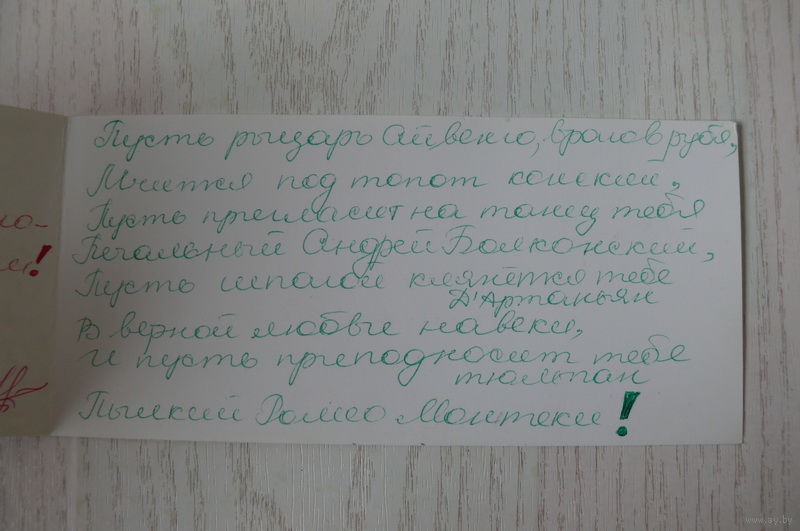 Пусть рыцарь Айвенго, врагов рубя,
Мчится под топот конский,
Пусть пригласит на танец тебя
Печальный Андрей Болконский,
Пусть шпагой клянётся тебе
Д'Артаньян
В верной любви навеки,
И пусть преподносит тебе
тюльпан
Пылкий Ромео Монтеки!
но-
и!
www.ay.by